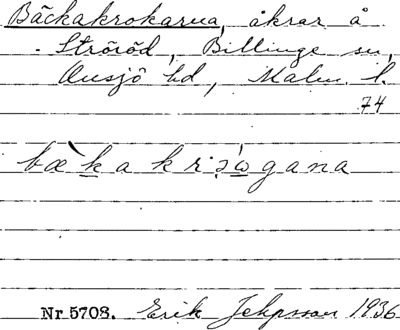 Bäckakrokarna, åkrar å
Ströröd, Billinge sn,
Onsjö hd, Malm. l.
74
bæ̀kakrąẃgana
Nr 5708. Erik Jeppsson 1936